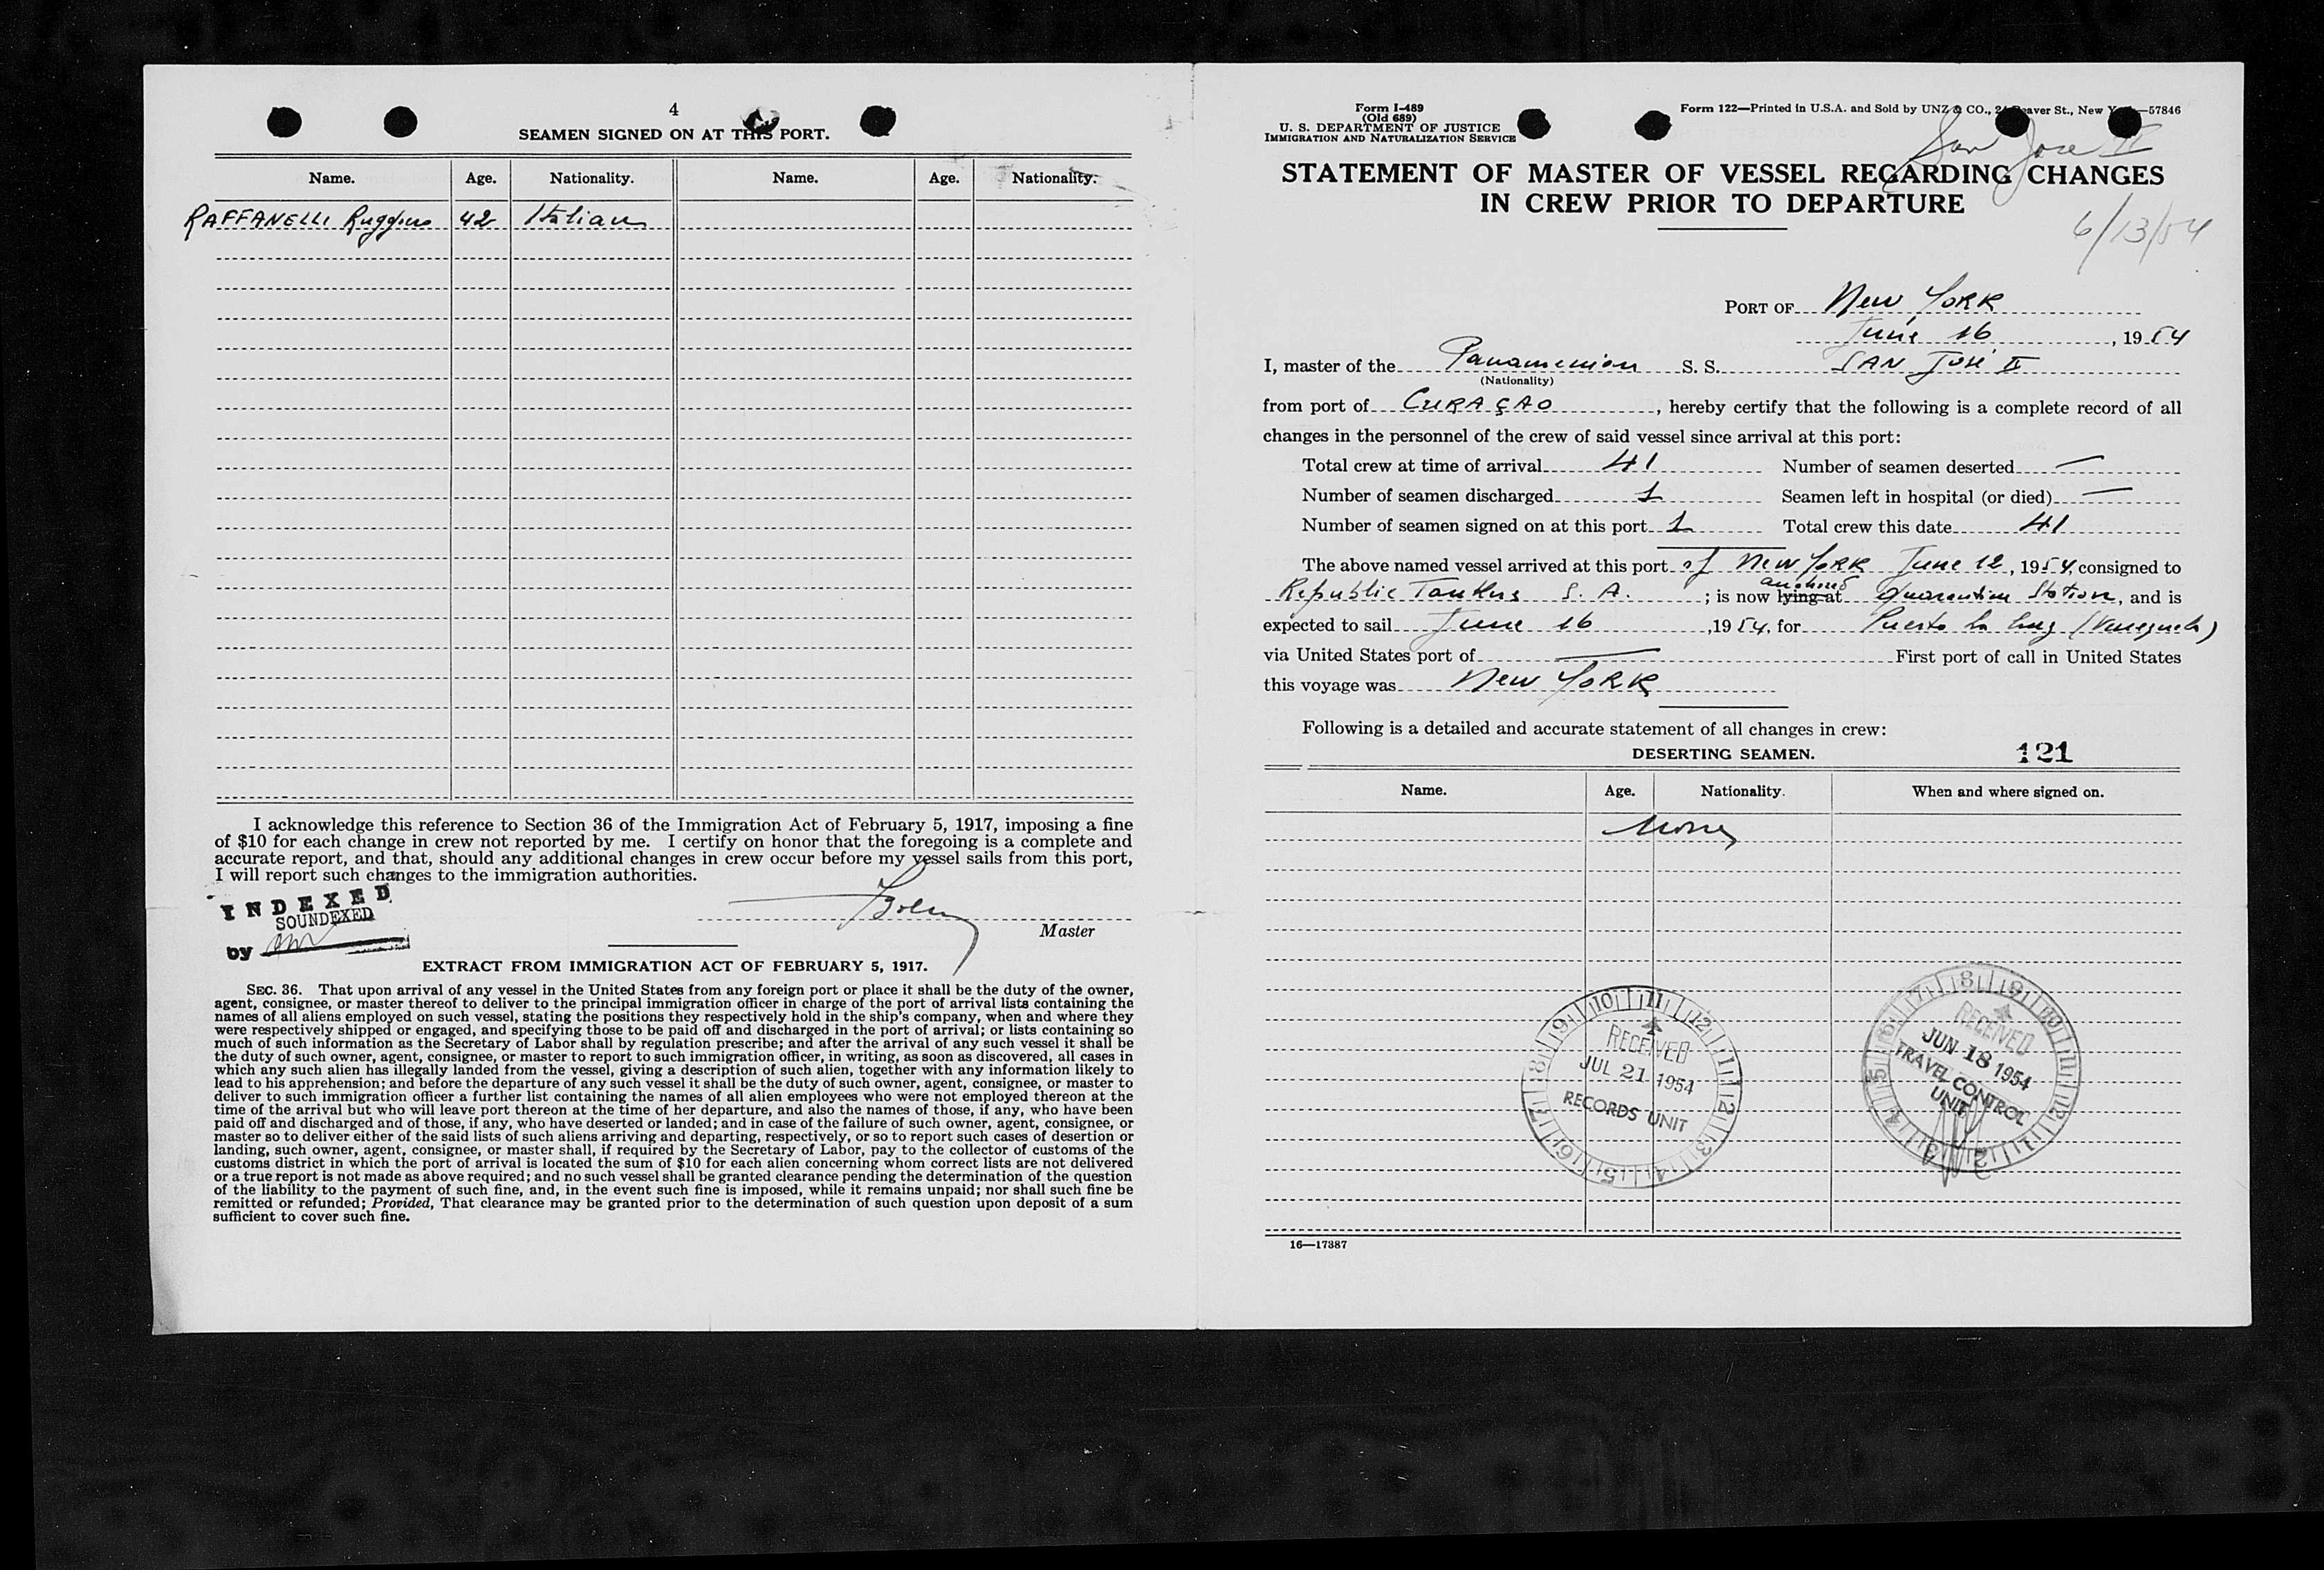 4
SEAMEN SIGNED ON AT THIS PORT.
Name. Age. Nationality. Name. Age. Nationality.
RAFFANELLI Ruggiero 42 Italian
I acknowledge this reference to Section 36 of the Immigration Act of February 5, 1917, imposing a fine
of $10 for each change in crew not reported by me. I certify on honor that the foregoing is a complete and
accurate report, and that, should any additional changes in crew occur before my vessel sails from this port,
I will report such changes to the immigration authorities.
INDEXED
SOUNDEXED
by
Master
EXTRACT FROM IMMIGRATION ACT OF FEBRUARY 5, 1917.
SEC. 36. That upon arrival of any vessel in the United States from any foreign port or place it shall be the duty of the owner,
agent, consignee, or master thereof to deliver to the principal immigration officer in charge of the port of arrival lists containing the
names of all aliens employed on such vessel, stating the positions they respectively hold in the ship's company, when and where they
were respectively shipped or engaged, and specifying those to be paid off and discharged in the port of arrival; or lists containing so
much of such information as the Secretary of Labor shall by regulation prescribe; and after the arrival of any such vessel it shall be
the duty of such owner, agent, consignee, or master to report to such immigration officer, in writing, as soon as discovered, all cases in
which any such alien has illegally landed from the vessel, giving a description of such alien, together with any information likely to
lead to his apprehension; and before the departure of any such vessel it shall be the duty of such owner, agent, consignee, or master to
deliver to such immigration officer a further list containing the names of all alien employees who were not employed thereon at the
time of the arrival but who will leave port thereon at the time of her departure, and also the names of those, if any, who have been
paid off and discharged and of those, if any, who have deserted or landed; and in case of the failure of such owner, agent, consignee, or
master so to deliver either of the said lists of such aliens arriving and departing, respectively, or so to report such cases of desertion or
landing, such owner, agent, consignee, or master shall, if required by the Secretary of Labor, pay to the collector of customs of the
customs district in which the port of arrival is located the sum of $10 for each alien concerning whom correct lists are not delivered
or a true report is not made as above required; and no such vessel shall be granted clearance pending the determination of the question
of the liability to the payment of such fine, and, in the event such fine is imposed, while it remains unpaid; nor shall such fine be
remitted or refunded; Provided, That clearance may be granted prior to the determination of such question upon deposit of a sum
sufficient to cover such fine.
Form I-489
(Old 689)
U. S. DEPARTMENT OF JUSTICE
IMMIGRATION AND NATURALIZATION SERVICE
Form 122—Printed in U.S.A. and Sold by UNZ & CO., 24 Beaver St., New York—57846
San Jose II
STATEMENT OF MASTER OF VESSEL REGARDING CHANGES
IN CREW PRIOR TO DEPARTURE
6/13/54
PORT OF New York
June 16, 1954
I, master of the Panamenian S. S. SAN José II
(Nationality)
from port of CURAÇAO, hereby certify that the following is a complete record of all
changes in the personnel of the crew of said vessel since arrival at this port:
Total crew at time of arrival 41 Number of seamen deserted —
Number of seamen discharged 1 Seamen left in hospital (or died) —
Number of seamen signed on at this port 1 Total crew this date 41
The above named vessel arrived at this port of New York June 12, 1954, consigned to
anchored
Republic Tankers S. A. ; is now lying at Quarantine Station, and is
expected to sail June 16, 1954, for Puerto la Cruz (Venezuela)
via United States port of — First port of call in United States
this voyage was New York
Following is a detailed and accurate statement of all changes in crew:
DESERTING SEAMEN. 121
Name. Age. Nationality. When and where signed on.
None
RECEIVED
JUL 21 1954
RECORDS UNIT
RECEIVED
JUN 18 1954
TRAVEL CONTROL
UNIT
16—17387